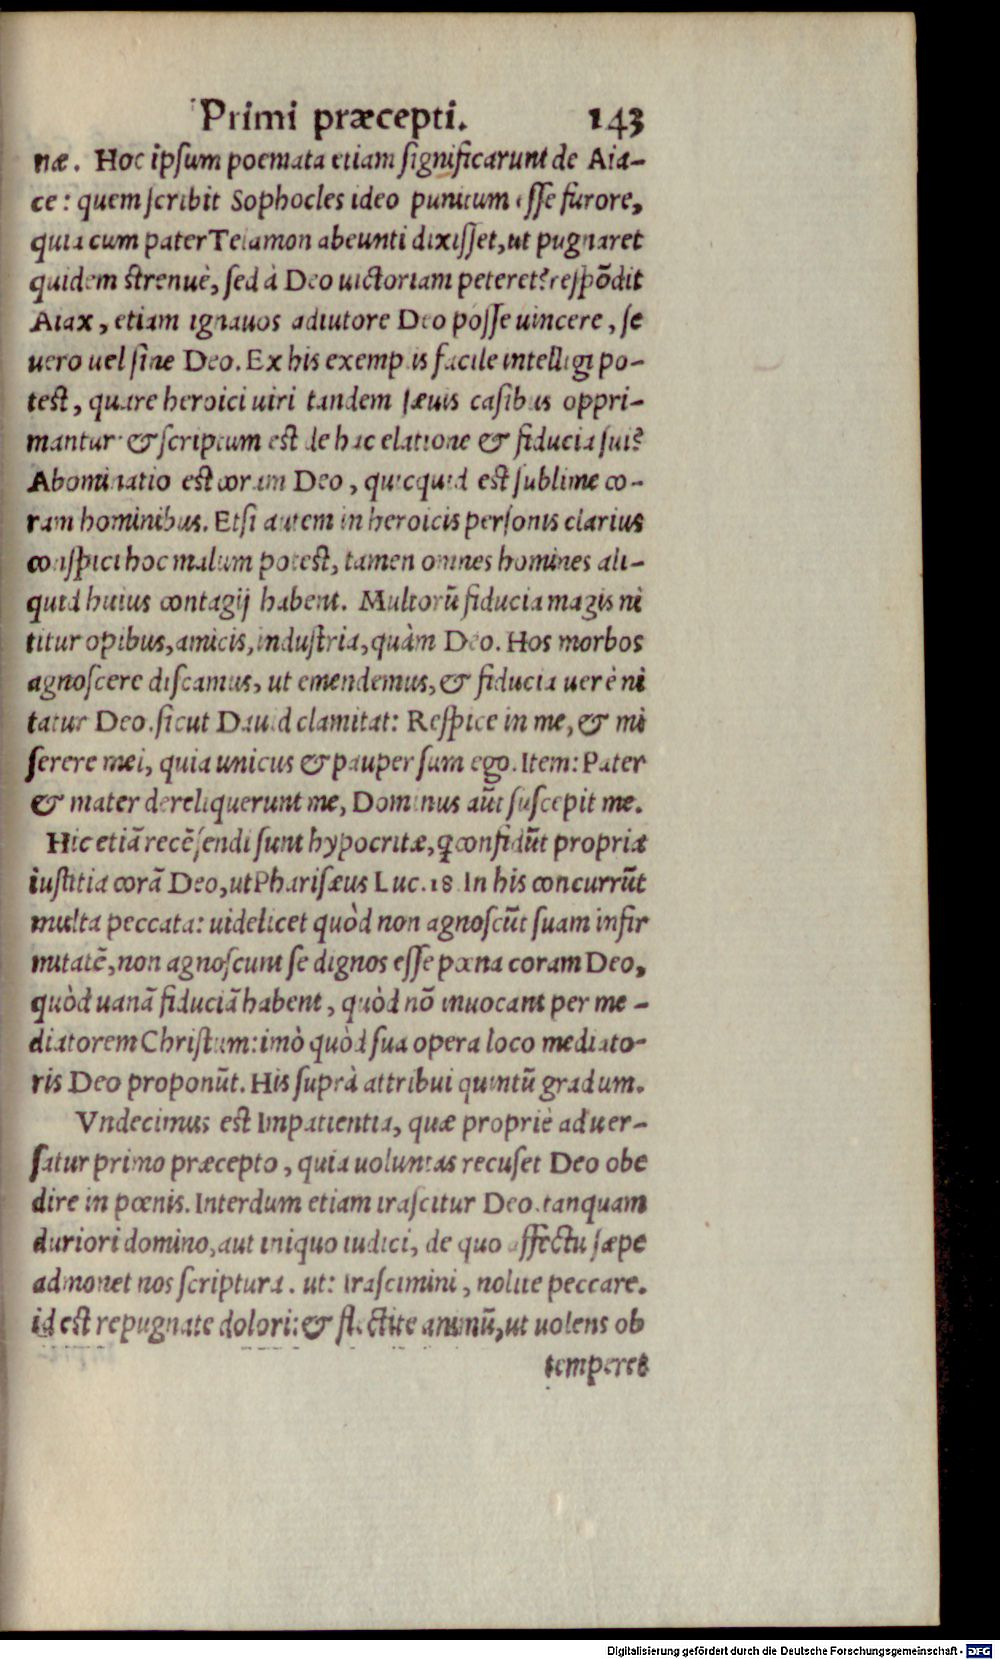 Primi præcepti. 143
næ. Hoc ipsum poemata etiam significarunt de Aia-
ce: quem scribit Sophocles ideo punitum esse furore,
quia cum pater Telamon abeunti dixisset, ut pugnaret
quidem strenuè, sed à Deo uictoriam peteret? respõdit
Aiax, etiam ignauos adiutore Deo posse uincere, se
uero uel sine Deo. Ex his exemplis facile intelligi po-
test, quare heroici uiri tandem sæuis casibus oppri-
mantur. & scriptum est de hac elatione & fiducia sui?
Abominatio est coram Deo, quicquid est sublime co-
ram hominibus. Etsi autem in heroicis personis clarius
conspici hoc malum potest, tamen omnes homines ali-
quid huius contagij habent. Multorũ fiducia magis ni
titur opibus, amicis, industria, quàm Deo. Hos morbos
agnoscere discamus, ut emendemus, & fiducia uerè ni
tatur Deo. sicut Dauid clamitat: Respice in me, & mi
serere mei, quia unicus & pauper sum ego. Item: Pater
& mater dereliquerunt me, Dominus aũt suscepit me.
Hic etiã recẽsendi sunt hypocritæ, q̃ confidũt propria
iustitia corã Deo, ut Pharisæus Luc. 18. In his concurrũt
multa peccata: uidelicet quòd non agnoscũt suam infir
mitatẽ, non agnoscunt se dignos esse pœna coram Deo,
quòd uanã fiduciã habent, quòd nõ inuocant per me-
diatorem Christum: imò quòd sua opera loco mediato-
ris Deo proponũt. His suprà attribui quintũ gradum.
Vndecimus est Impatientia, quæ propriè aduer-
satur primo præcepto, quia uoluntas recuset Deo obe
dire in pœnis. Interdum etiam irascitur Deo. tanquam
duriori domino, aut iniquo iudici, de quo affectu sæpe
admonet nos scriptura. ut: Irascimini, nolite peccare.
id est repugnate dolori: & flectite animũ, ut uolens ob
temperet
Digitalisierung gefördert durch die Deutsche Forschungsgemeinschaft - DFG